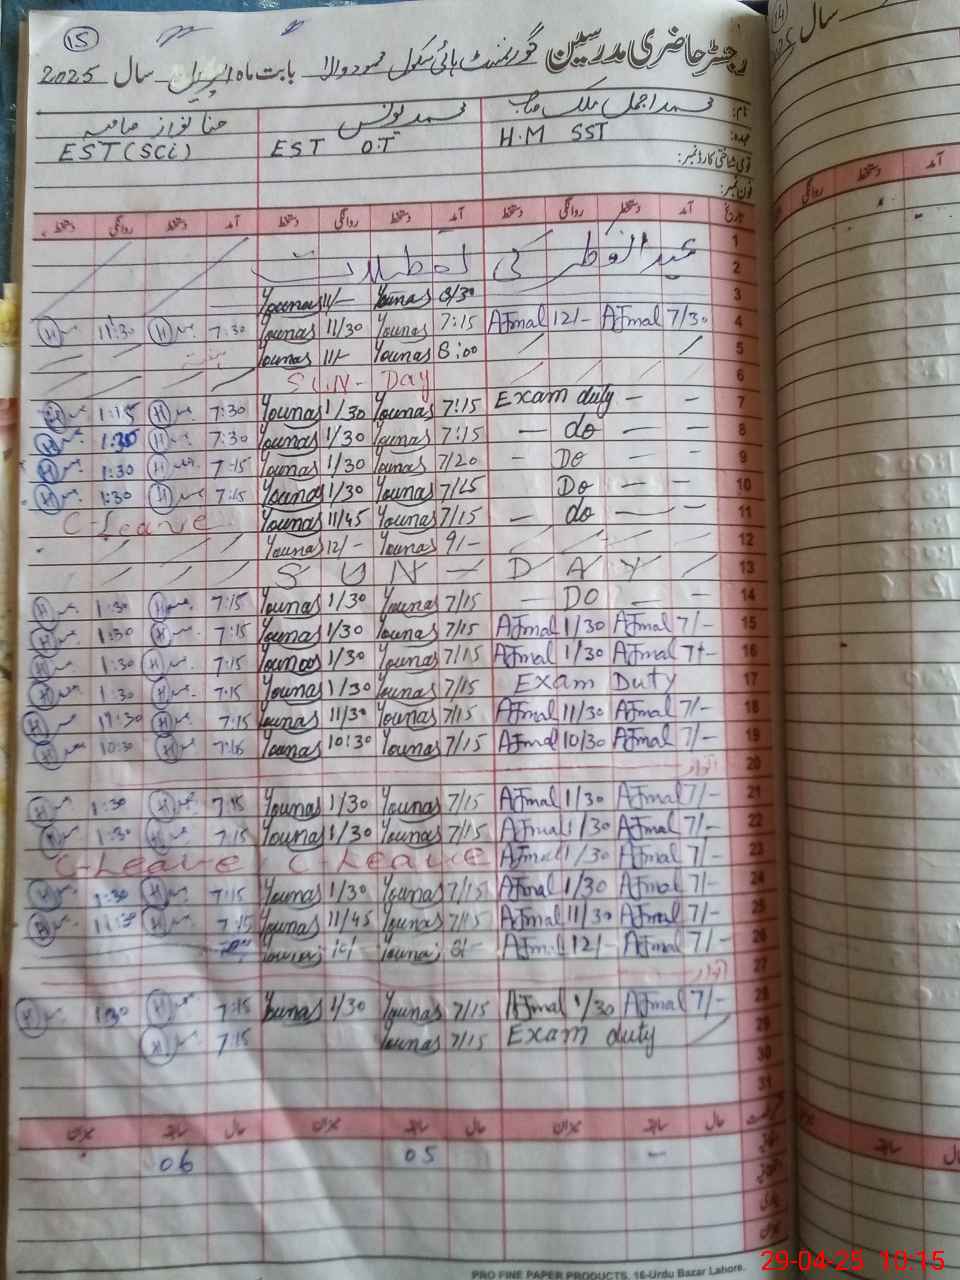 15
رجسٹر حاضری مدرسین گورنمنٹ ہائی سکول محمود والا بابت ماہ اپریل سال 2025
نام: محمد اجمل ملک صاحب محمد یونس حنا نواز صاحبہ
عہدہ: H.M SST EST O.T EST (SCi)
قومی شناختی کارڈ نمبر:
فون نمبر:
تاریخ آمد دستخط روانگی دستخط آمد دستخط روانگی دستخط آمد دستخط روانگی دستخط
1
2 عید الفطر کی تعطیلات
3 Younas 11/- Younas 8/30
4 H 11:30 H 7:30 Younas 11/30 Younas 7:15 AJmal 12/- AJmal 7/30
5 Younas 11/- Younas 8:00
6 SUN - Day
7 H 1:15 H 7:30 Younas 1/30 Younas 7:15 Exam duty - -
8 H 1:30 H 7:30 Younas 1/30 Younas 7:15 - do - -
9 H 1:30 H 7:15 Younas 1/30 Younas 7/20 - Do - -
10 H 1:30 H 7:15 Younas 1/30 Younas 7/25 Do - -
11 C-Leave Younas 11/45 Younas 7/15 - do - -
12 Younas 12/- Younas 9/-
13 S U N - D A Y
14 H 1:30 H 7:15 Younas 1/30 Younas 7/15 - DO - -
15 H 1:30 H 7:15 Younas 1/30 Younas 7/15 AJmal 1/30 AJmal 7/-
16 H 1:30 H 7:15 Younas 1/30 Younas 7/15 AJmal 1/30 AJmal 7/-
17 H 1:30 H 7:15 Younas 1/30 Younas 7/15 Exam Duty
18 H 11:30 H 7:15 Younas 11/30 Younas 7/15 AJmal 11/30 AJmal 7/-
19 H 10:30 H 7:15 Younas 10:30 Younas 7/15 AJmal 10/30 AJmal 7/-
20 اتوار
21 H 1:30 H 7:15 Younas 1/30 Younas 7/15 AJmal 1/30 AJmal 7/-
22 H 1:30 H 7:15 Younas 1/30 Younas 7/15 AJmal 1/30 AJmal 7/-
23 C-Leave C-Leave AJmal 1/30 AJmal 7/-
24 H 1:30 H 7:15 Younas 1/30 Younas 7/15 AJmal 1/30 AJmal 7/-
25 H 11:30 H 7:15 Younas 11/45 Younas 7/15 AJmal 11/30 AJmal 7/-
26 Younas Younas 8/- AJmal 12/- AJmal 7/-
27 اتوار
28 H 1:30 H 7:15 Younas 1/30 Younas 7/15 AJmal 1/30 AJmal 7/-
29 H 7:15 Younas 7/15 Exam duty
30
31
حال سابقہ میزان حال سابقہ میزان حال سابقہ میزان
اتفاقیہ - 05 06
PRO FINE PAPER PRODUCTS, 16-Urdu Bazar Lahore.
14
سال
آمد دستخط روانگی
29-04-25 10:15